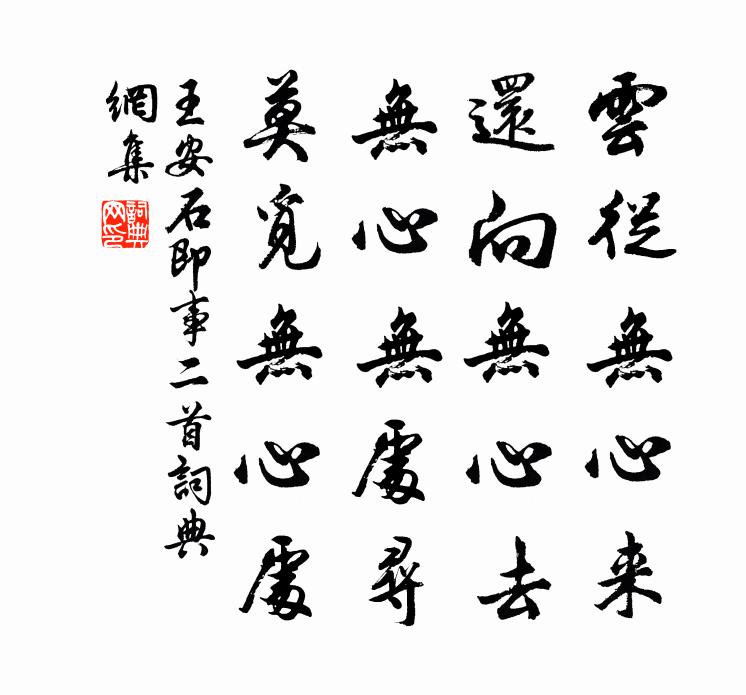 雲從無心来
還向無心去
無心無處尋
莫覓無心處
王安石即事二首詞典
網集
詞典
网印